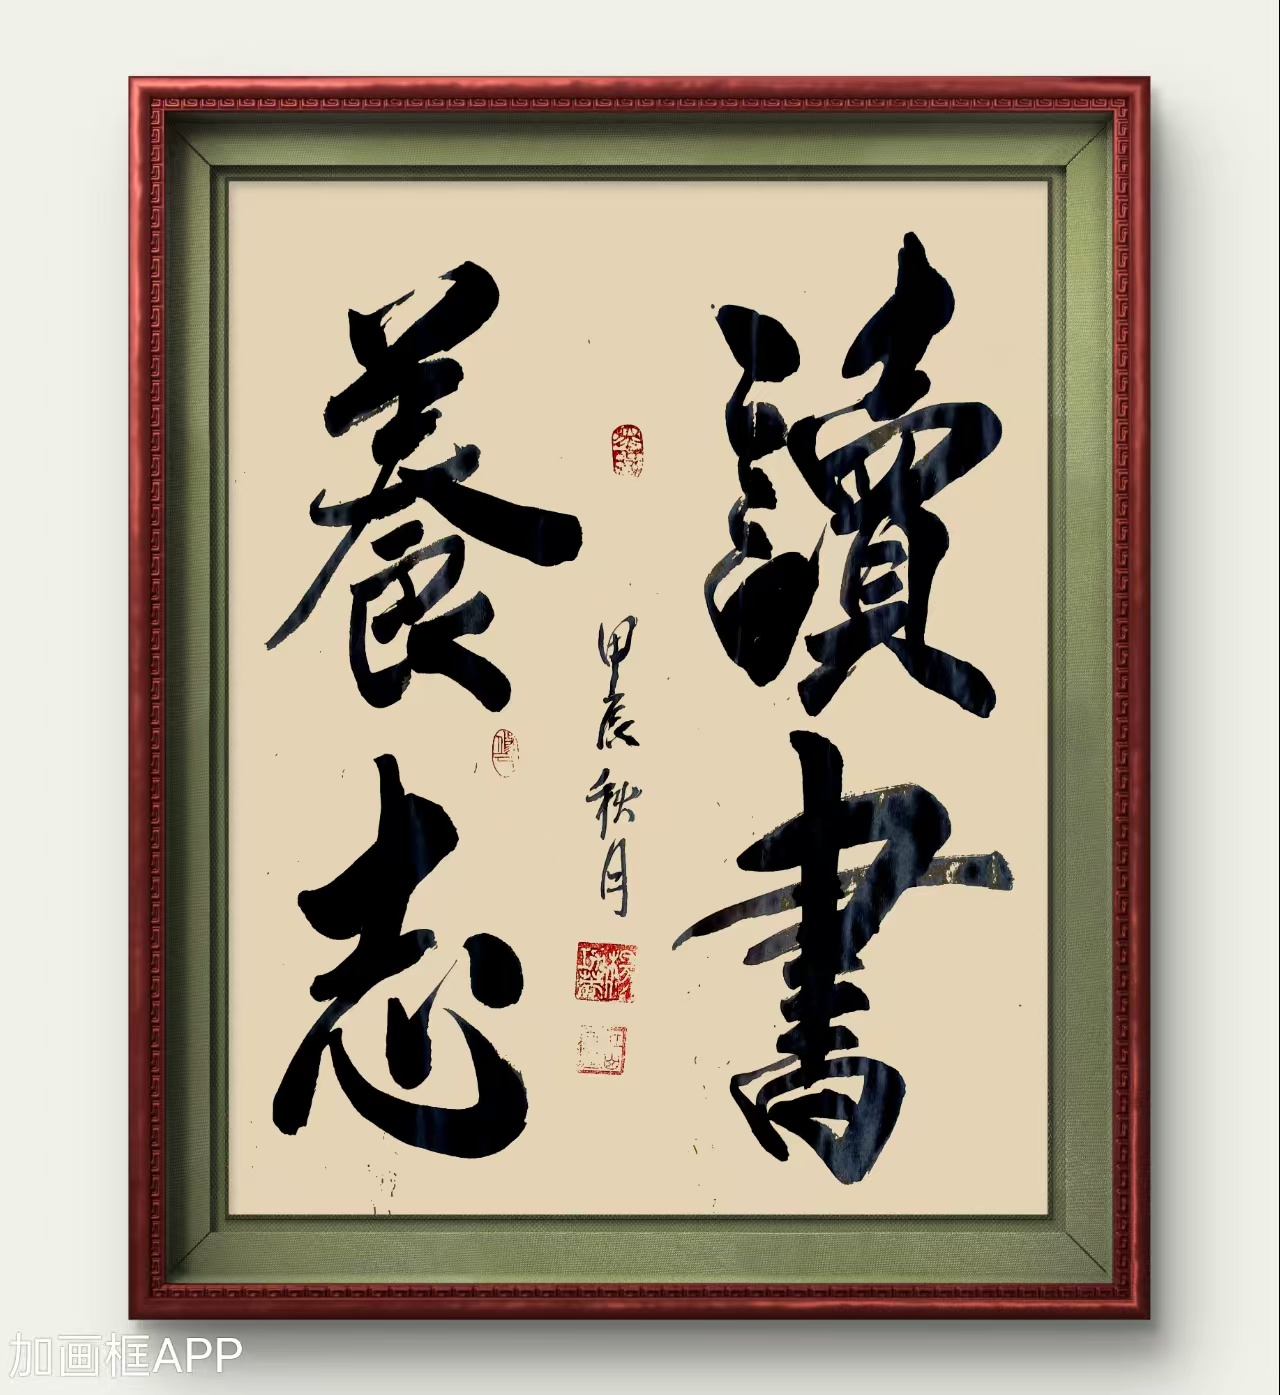 讀書
養志
甲辰秋月
加画框APP